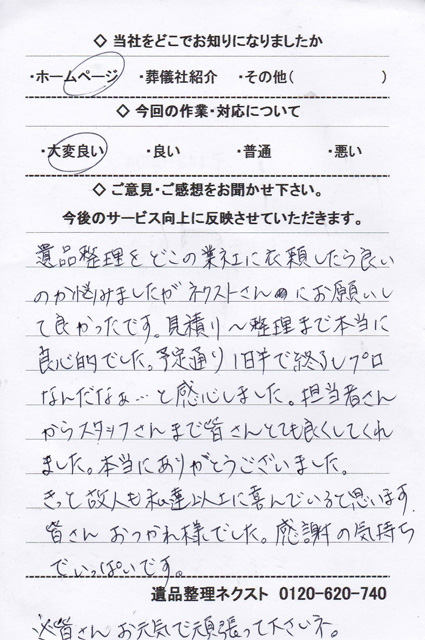 ◇ 当社をどこでお知りになりましたか
・ホームページ ・葬儀社紹介 ・その他( )
◇ 今回の作業・対応について
・大変良い ・良い ・普通 ・悪い
◇ ご意見・ご感想をお聞かせ下さい。
今後のサービス向上に反映させていただきます。
遺品整理をどこの業社に衣頼したら良い
のか悩みましたがネクストさんにお願いし
て良かったです。見積り〜整理まで本当に
良心的でした。予定通り1日半で終るしプロ
なんだなぁ…と感心しました。担当者さん
からスタッフさんまで皆さんとても良くしてくれ
ました。本当にありがとうございました。
きっと故人も私達以上に喜んでいると思います
皆さんおつかれ様でした。感謝の気持ち
でいっぱいです。
遺品整理ネクスト 0120-620-740
※皆さんお元気で頑張って下さいネ。